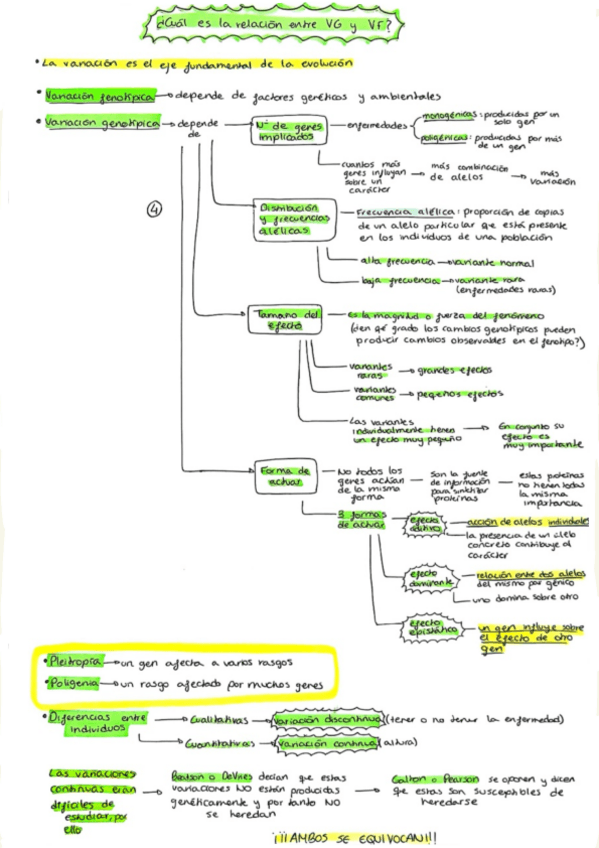 ¿Cuál es la relación entre VG y VF?
• La variación es el eje fundamental de la evolución
• Variación fenotípica → depende de factores genéticos y ambientales
• Variación genotípica → depende de
Nº de genes implicados
enfermedades
monogénicas: producidas por un solo gen
poligénicas: producidas por más de un gen
cuantos más genes influyan sobre un carácter → más combinación de alelos → más variación
4
Distribución y frecuencias alélicas
Frecuencia alélica: proporción de copias
de un alelo particular que está presente
en los individuos de una población
alta frecuencia → variante normal
baja frecuencia → variante rara
(enfermedades raras)
Tamaño del efecto
es la magnitud o fuerza del fenómeno
(¿en qé grado los cambios genotípicos pueden
producir cambios observables en el fenotipo?)
variantes raras → grandes efectos
variantes comunes → pequeños efectos
Las variantes
individualmente tienen
un efecto muy pequeño
→ En conjunto su
efecto es
muy importante
Forma de actuar
No todos los
genes actúan
de la misma
forma
→ Son la fuente
de información
para sintetizar
proteínas
→ estas proteínas
no tienen todas
la misma
importancia
3 formas de actuar
efecto aditivo
acción de alelos individuales
la presencia de un alelo
concreto contribuye al
carácter
efecto dominante
relación entre dos alelos
del mismo par génico
uno domina sobre otro
efecto epistático
un gen influye sobre
el efecto de otro
gen
• Pleitropía → un gen afecta a varios rasgos
• Poligenia → un rasgo afectado por muchos genes
• Diferencias entre individuos
→ Cualitativas → Variación discontinua (tener o no tener la enfermedad)
→ Cuantitativas → Variación continua (altura)
Las variaciones
continuas eran
difíciles de
estudiar, por
ello
→ Bateson o DeVries decían que estas
variaciones NO están producidas
genéticamente y por tanto NO
se heredan
→ Galton o Pearson se oponen y dicen
que estas son susceptibles de
heredarse
¡¡¡AMBOS SE EQUIVOCAN!!!